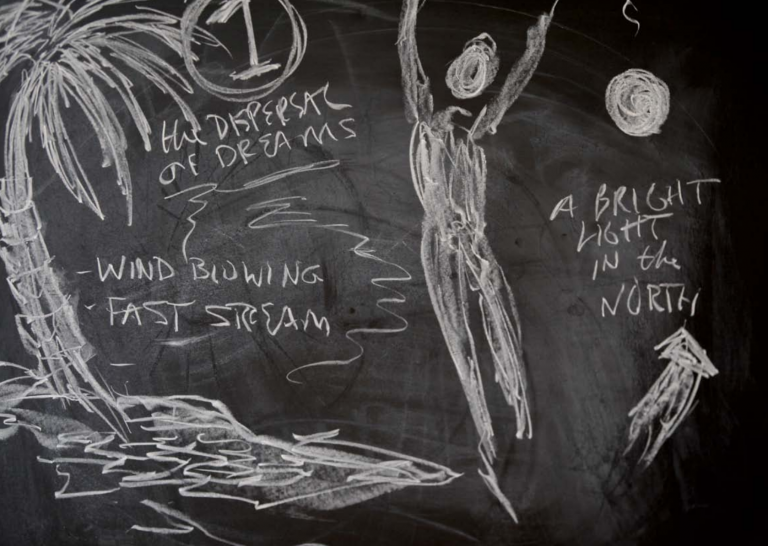 1
the DISPERSAL
OF DREAMS
-WIND BLOWING
-FAST STREAM
A BRIGHT
LIGHT
IN the
NORTH